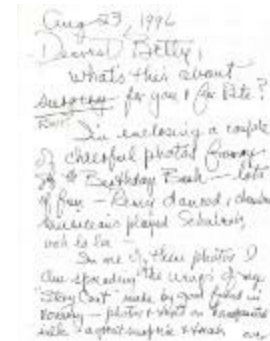 Aug 23, 1996
Dearest Betty,
What's this about
surgery for you & for Pete?
I'm enclosing a couple
of cheerful photos from my
Birthday Bash — lots
of fun — danced,
musicians played
ooh la la —
In one of these photos I
am spreading the wings of my
"Story Coat" made by good friend in
— photos & on
silk - a great surprise &
over